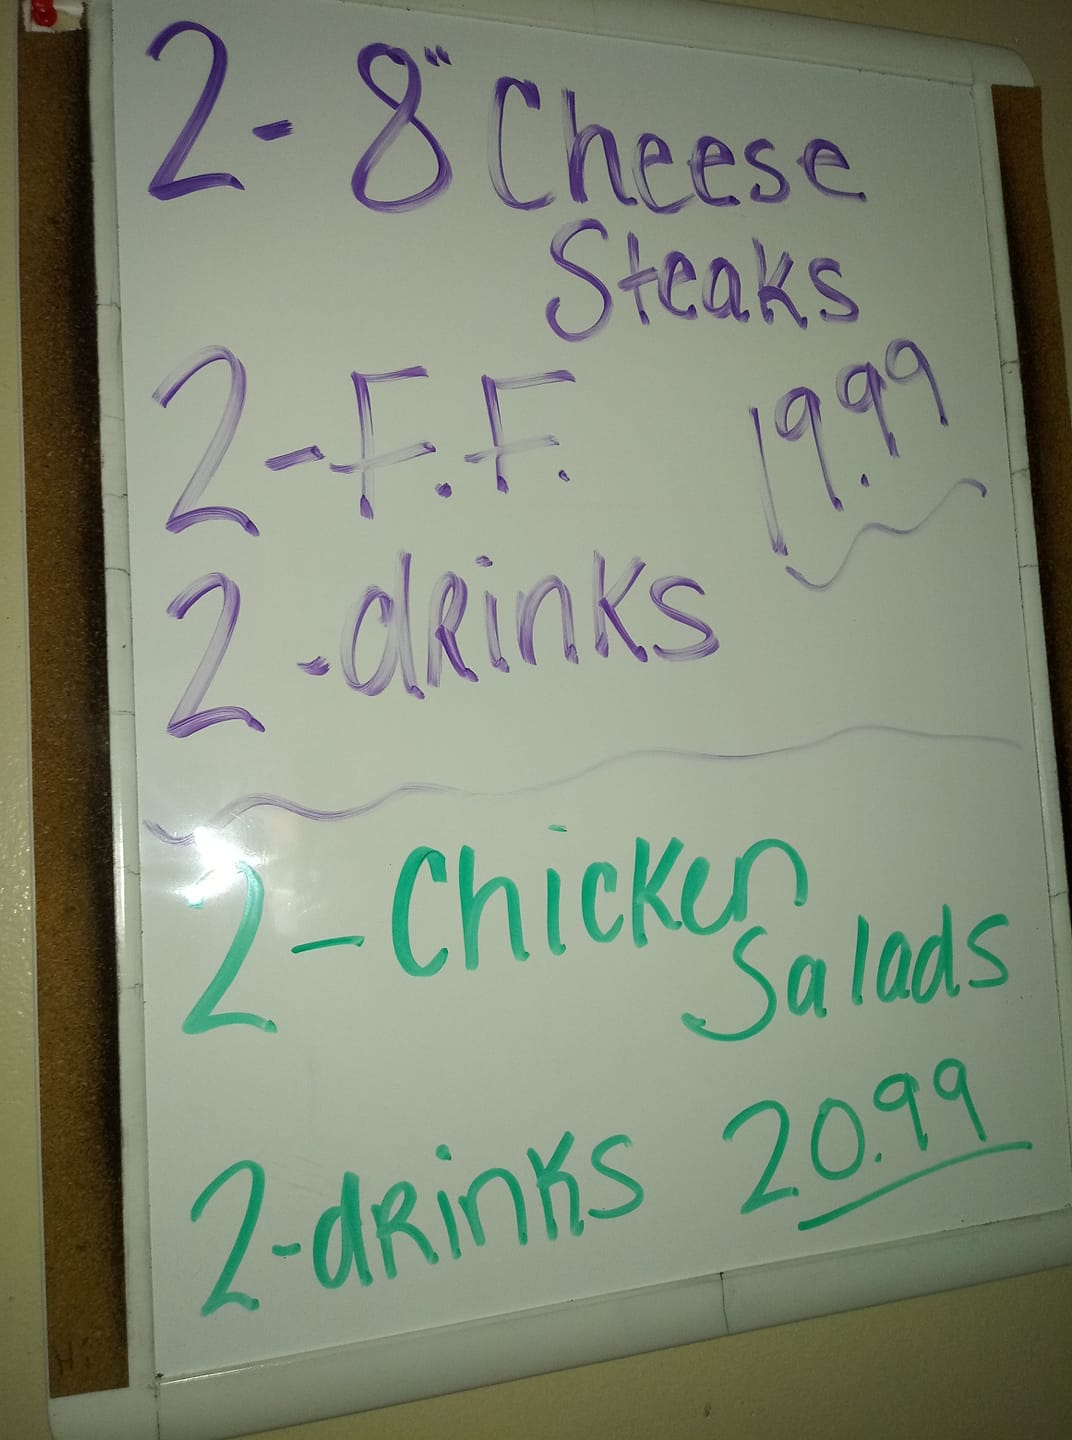 2- 8" Cheese
Steaks
2- F.F. 19.99
2-drinks
2- Chicken
Salads
2-drinks 20.99
Hi